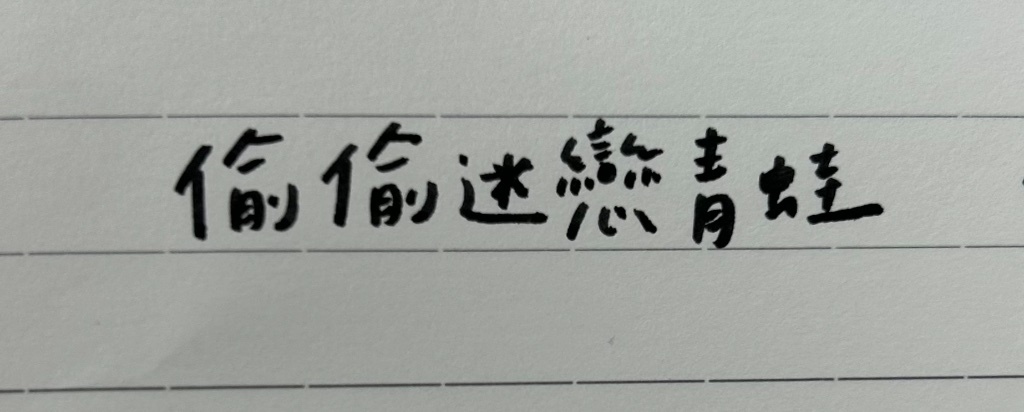 偷偷迷戀青蛙